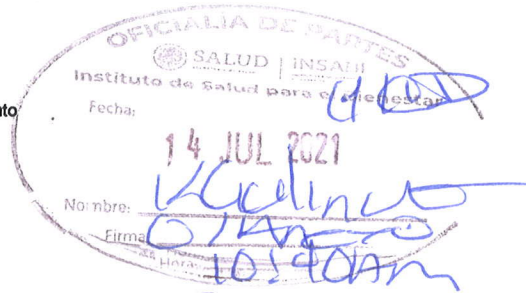 OFICIALÍA DE PARTES
SALUD | INSABI
Instituto de Salud para el Bienestar
nto
Fecha:
14 JUL 2021
Nombre:
Firma
Hora:
10:40Am